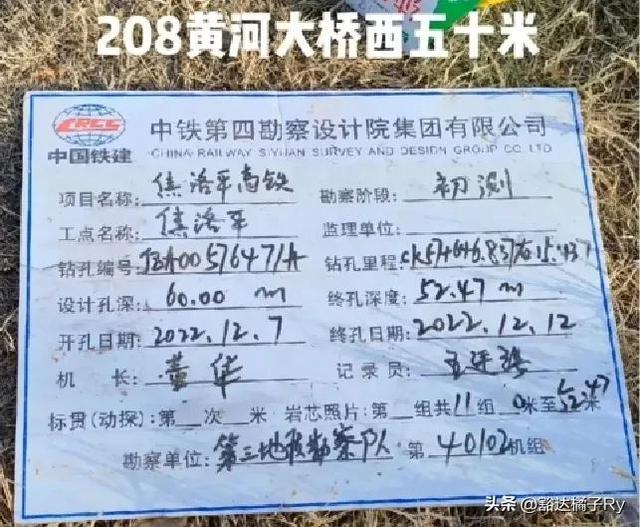 208黄河大桥西五十米
CRCC
中国铁建
中铁第四勘察设计院集团有限公司
CHINA RAILWAY SIYUAN SURVEY AND DESIGN GROUP CO. LTD
项目名称: 焦洛平高铁 勘察阶段: 初测
工点名称: 焦洛平 监理单位:
钻孔编号: 钻孔里程:
设计孔深: 60.00 m 终孔深度: 52.47 m
开孔日期: 2022.12.7 终孔日期: 2022.12.12
机 长: 董华 记录员:
标贯(动探): 第 次 米 岩芯照片: 第 组共11组 0米至52.47米
勘察单位: 第三地质勘察队 第40102机组
头条 @豁达橘子Ry